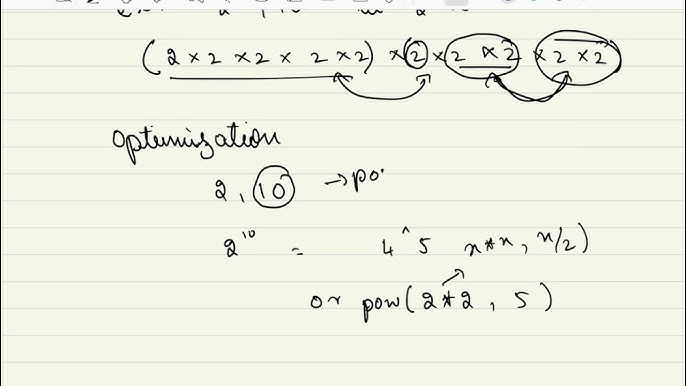 (2 × 2 × 2 × 2 × 2) × 2 × 2 × 2 × 2 × 2
optimization
2, 10 → po
2^10 = 4^5 x*x, n/2)
or pow(2*2, 5)